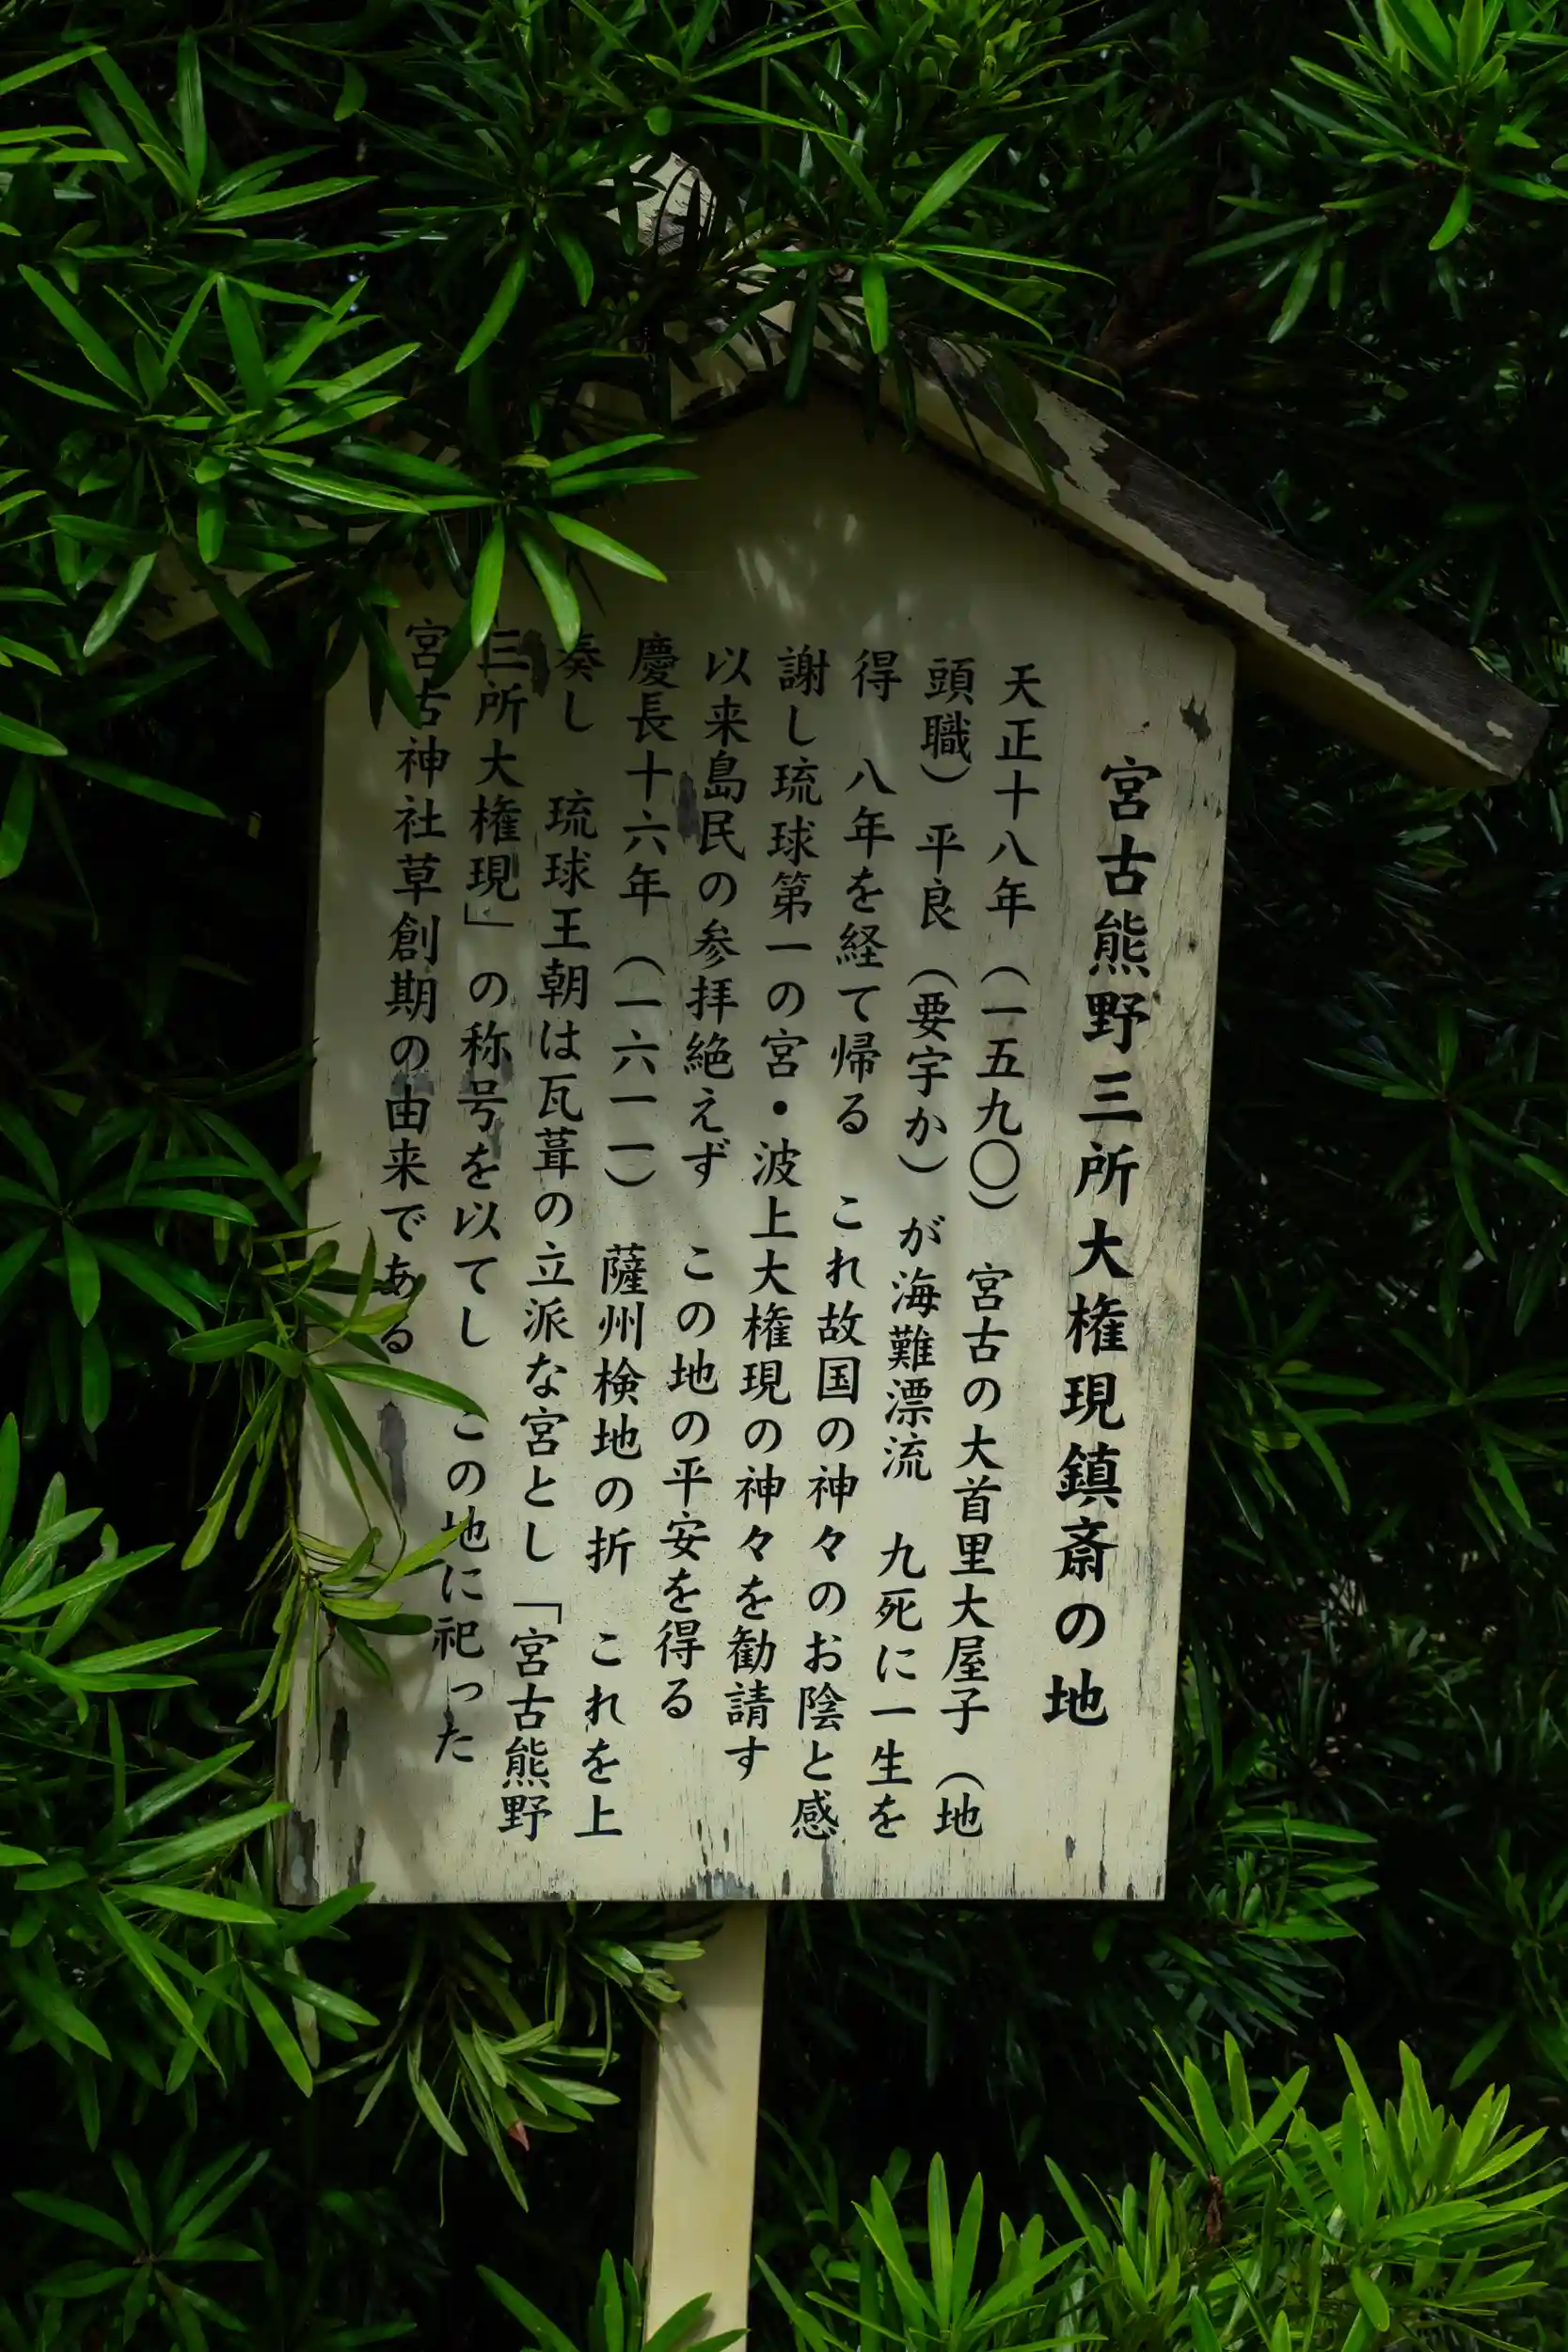 宮古熊野三所大権現鎮斎の地
天正十八年（一五九〇） 宮古の大首里大屋子（地
頭職）平良（要宇か）が海難漂流 九死に一生を
得 八年を経て帰る これ故国の神々のお陰と感
謝し琉球第一の宮・波上大権現の神々を勧請す
以来島民の参拝絶えず この地の平安を得る
慶長十六年（一六一一） 薩州検地の折 これを上
奏し 琉球王朝は瓦葺の立派な宮とし「宮古熊野
三所大権現」の称号を以てし この地に祀った
宮古神社草創期の由来である